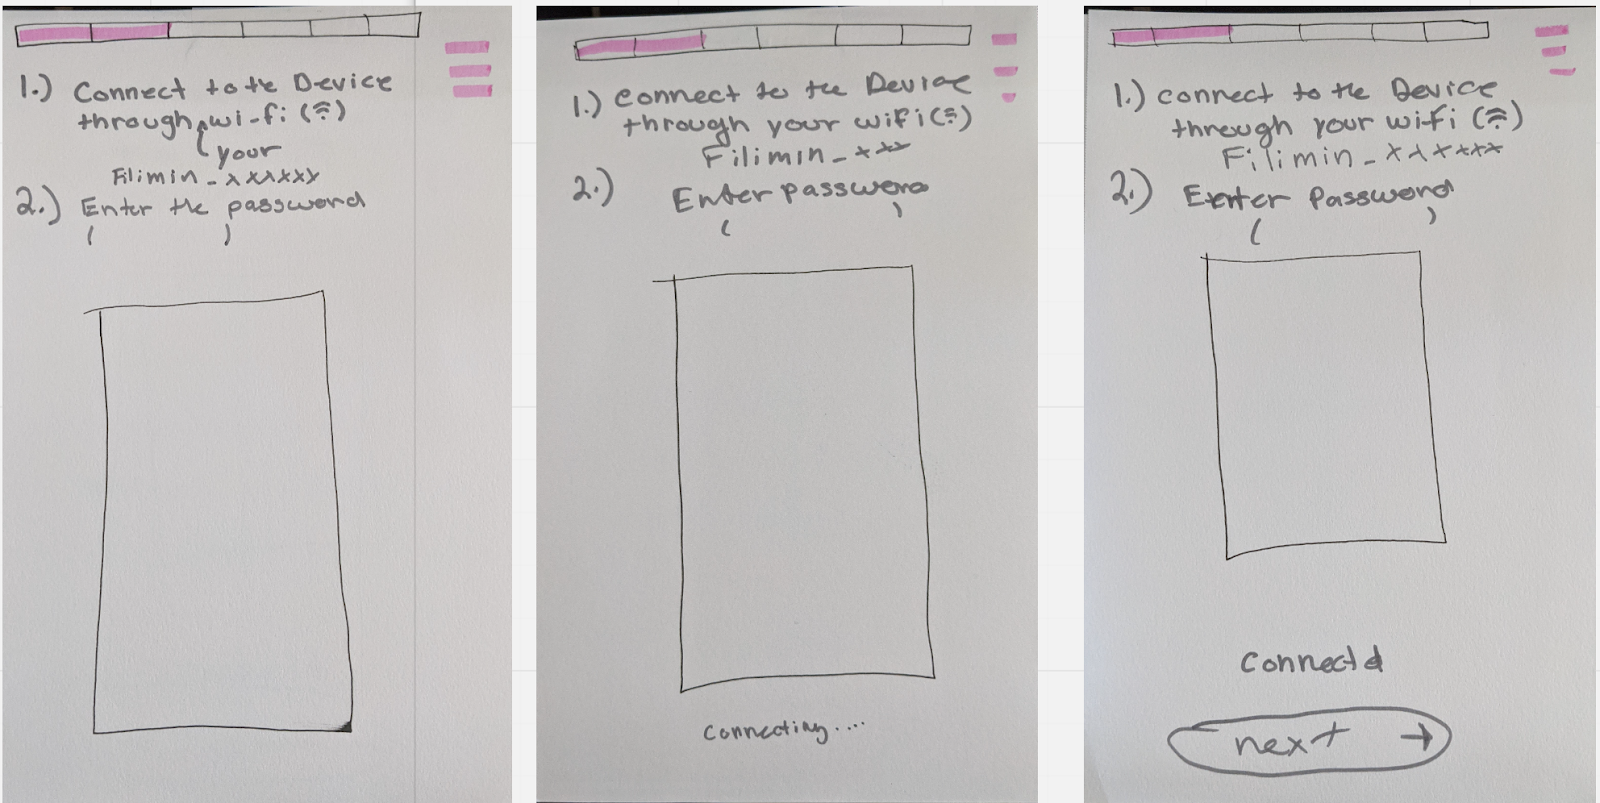 1.) Connect to the Device
through wi-fi ( )
your
Filimin_xxxxxx
2.) Enter the password
( )
1.) Connect to the Device
through your wifi ( )
Filimin_xxx
2.) Enter password
( )
Connecting....
1.) connect to the Device
through your wifi ( )
Filimin_xxxxxx
2.) Enter Password
( )
Connectd
next →